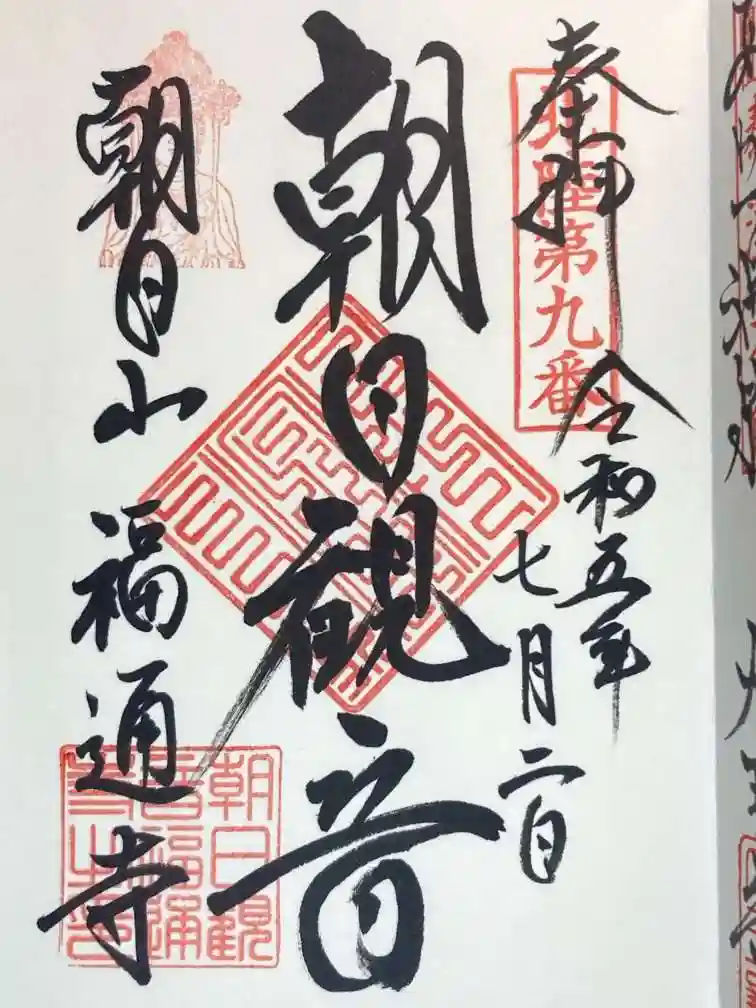 奉拝
北陸第九番
令和五年
七月二日
朝日観音
朝日山
福通寺
朝日観
音福通
寺之印